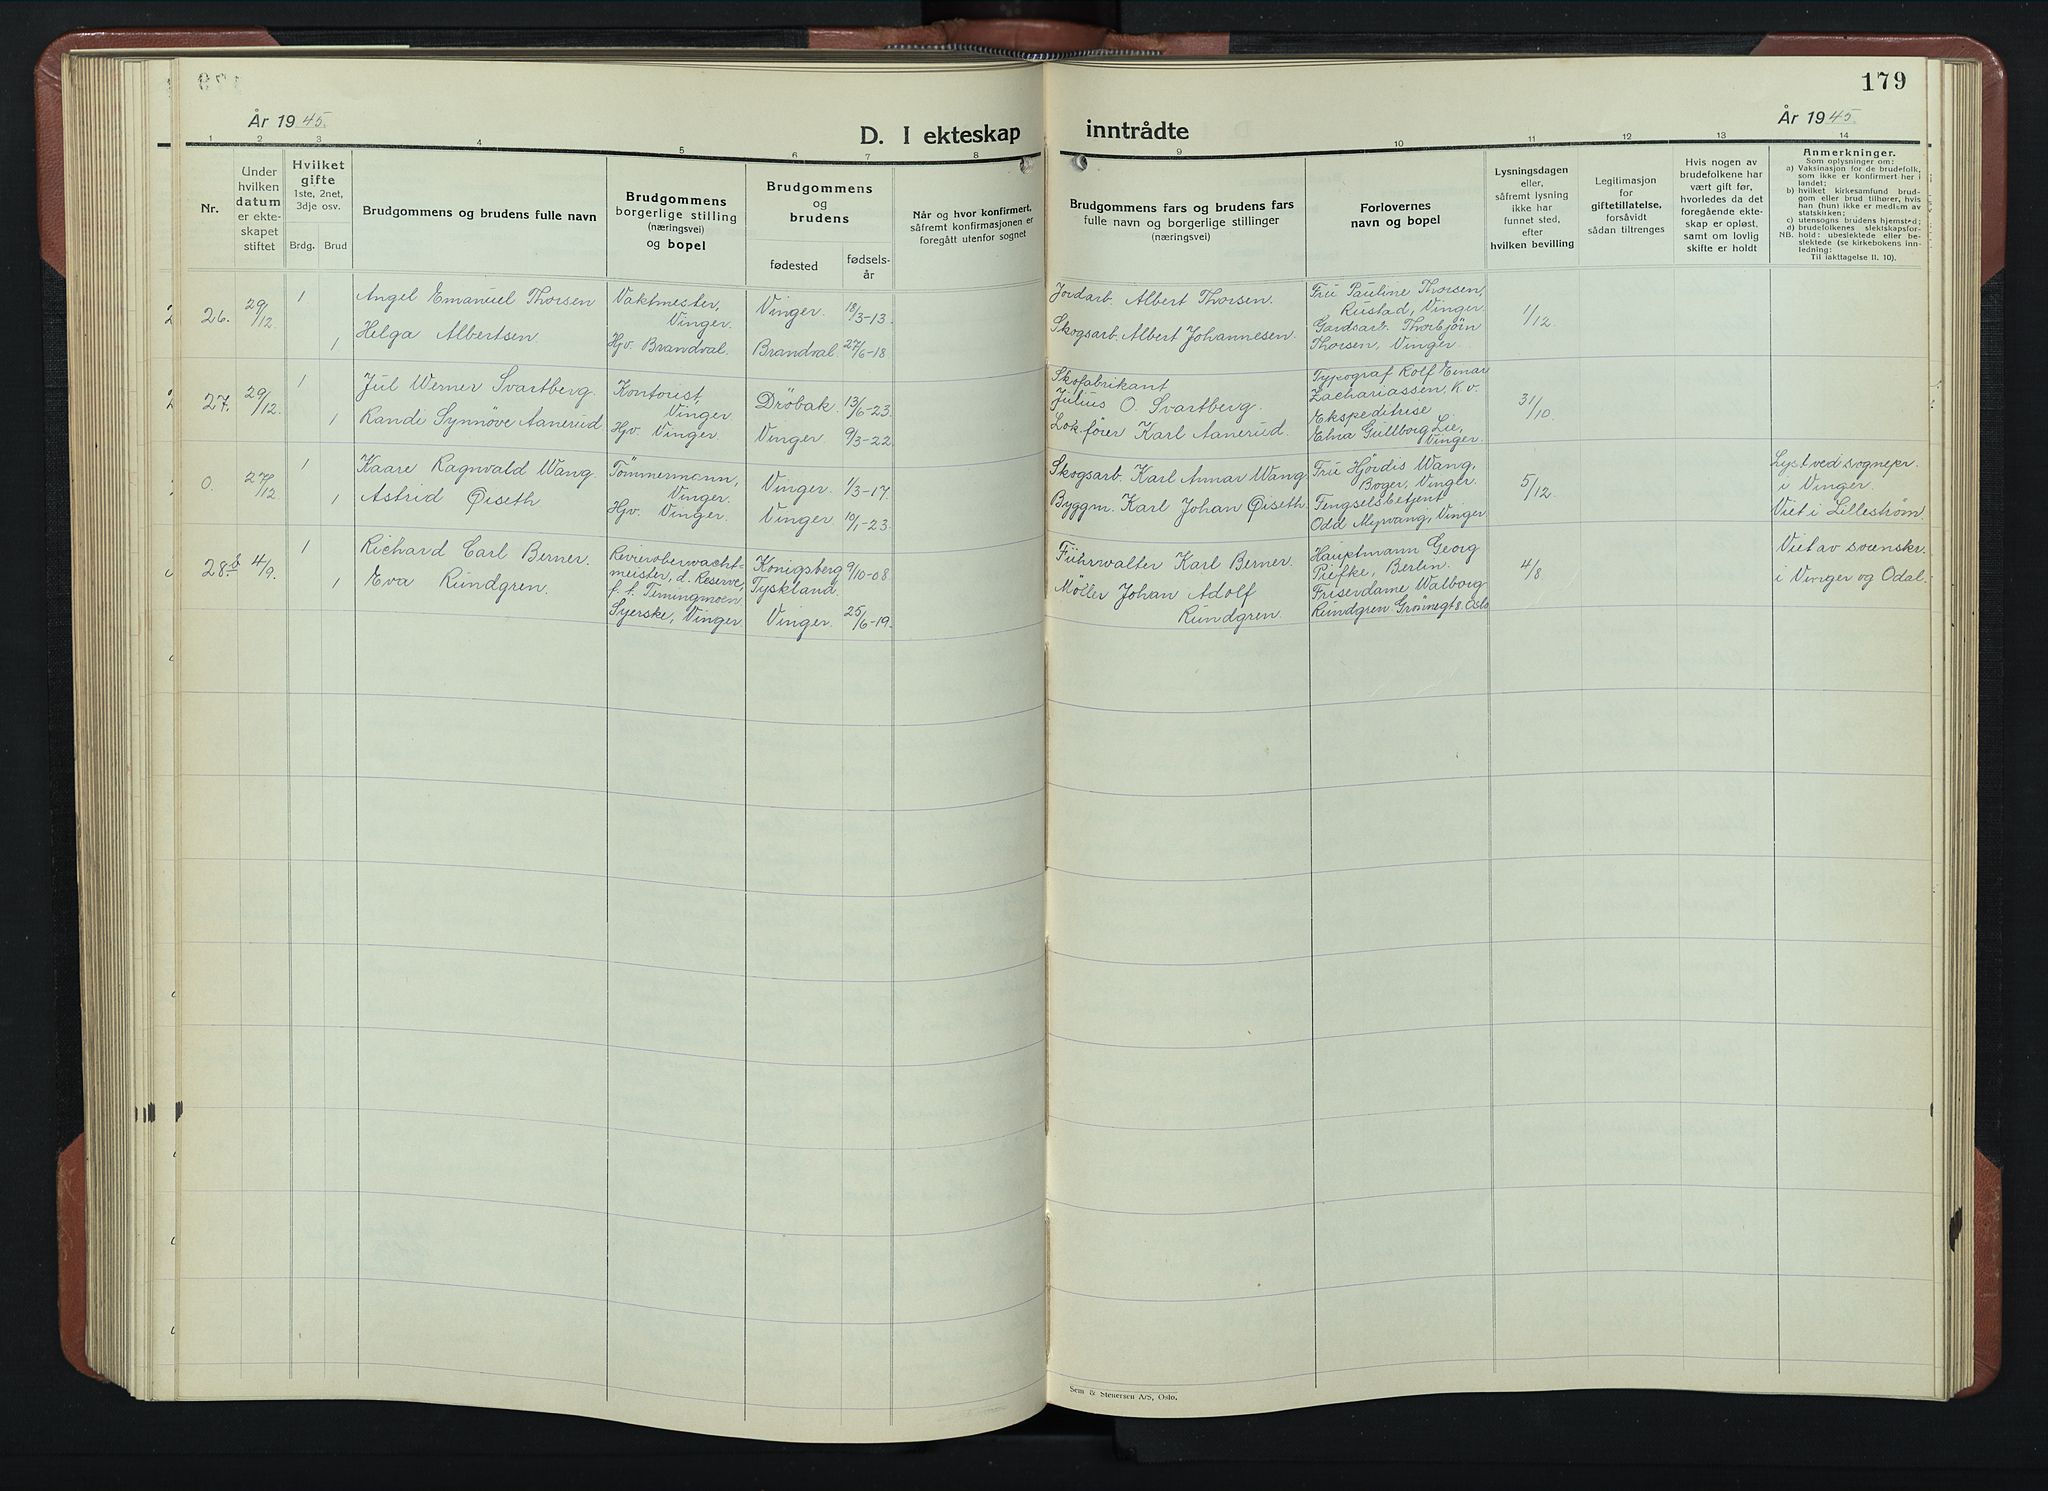 179
År 1945.
D. I ekteskap inntrådte
År 1945.
1 2 3 4 5 6 7 8 9 10 11 12 13 14
Nr.
Under
hvilken
datum
er ekte-
skapet
stiftet
Hvilket
gifte
1ste, 2net,
3dje osv.
Brdg. Brud
Brudgommens og brudens fulle navn
Brudgommens
borgerlige stilling
(næringsvei)
og bopel
Brudgommens
og
brudens
fødested
fødsels-
år
Når og hvor konfirmert,
såfremt konfirmasjonen er
foregått utenfor sognet
Brudgommens fars og brudens fars
fulle navn og borgerlige stillinger
(næringsvei)
Forlovernes
navn og bopel
Lysningsdagen
eller,
såfremt lysning
ikke har
funnet sted,
efter
hvilken bevilling
Legitimasjon
for
giftetillatelse,
forsåvidt
sådan tiltrenges
Hvis nogen av
brudefolkene har
vært gift før,
hvorledes da det
foregående ekte-
skap er opløst,
samt om lovlig
skifte er holdt
Anmerkninger.
Som oplysninger om:
a) Vaksinasjon for de brudefolk,
som ikke er konfirmert her i
landet;
b) hvilket kirkesamfund brud-
gom eller brud tilhører, hvis
han (hun) ikke er medlem av
statskirken;
c) utensogns brudens hjemsted;
d) brudefolkenes slektskapsfor-
NB. hold: ubeslektede eller be-
slektede (se kirkebokens inn-
ledning;
Til iakttagelse II. 10).
26. 29/12. 1
Angel Emanuel Thorsen
Vaktmester,
Vinger.
Vinger. 18/3-13.
Jordarb. Albert Thorsen.
Fru Pauline Thorsen,
Rustad, Vinger.
1/12.
1 Helga Albertsen.
Hjv. Brandval.
Brandval. 27/6-18
Skogsarb. Albert Johannesen.
Gardsarb. Thorbjörn
Thorsen, Vinger.
27. 29/12. 1
Jul Werner Svartberg.
Kontorist,
Vinger
Dröbak. 13/6-23.
Skofabrikant
Julius O. Svartberg.
Typograf Rolf Einar
Zachariassen, K.v.
31/10
1 Randi Synnöve Aanerud
Hjv. Vinger.
Vinger. 9/3-22.
Lok.förer Karl Aanerud.
Ekspeditrise
Edna Gullborg Lie,
Vinger.
0. 27/12 1
Kaare Ragnvald Wang.
Tömmermann,
Vinger.
Vinger. 1/3-17.
Skogsarb. Karl Annar Wang.
Fru Hjördis Wang,
Boger, Vinger.
5/12.
Lyst ved sognepr.
i Vinger.
1 Astrid Öiseth
Hjv. Vinger.
Vinger. 10/1-23.
Byggm. Karl Johan Öiseth.
Fengselsbetjent
Odd Myrvang, Vinger
Viet i Lilleström.
28. 4/9. 1
Richard Carl Berner.
Revieroberwacht-
meister, d. Reserve,
f. t. Terningmoen.
Königsberg
Tyskland. 9/10-08.
Führwalter Karl Berner.
Hauptmann Georg
Piefke, Berlin.
4/8
Viet av svenskr.
i Vinger og Odal.
1 Eva Rundgren.
Syerske, Vinger
Vinger. 25/6-19.
Möller Johan Adolf
Rundgren.
Friserdame Walborg
Rundgren Grönnegt 8. Oslo
Sem & Stenersen A/S, Oslo.